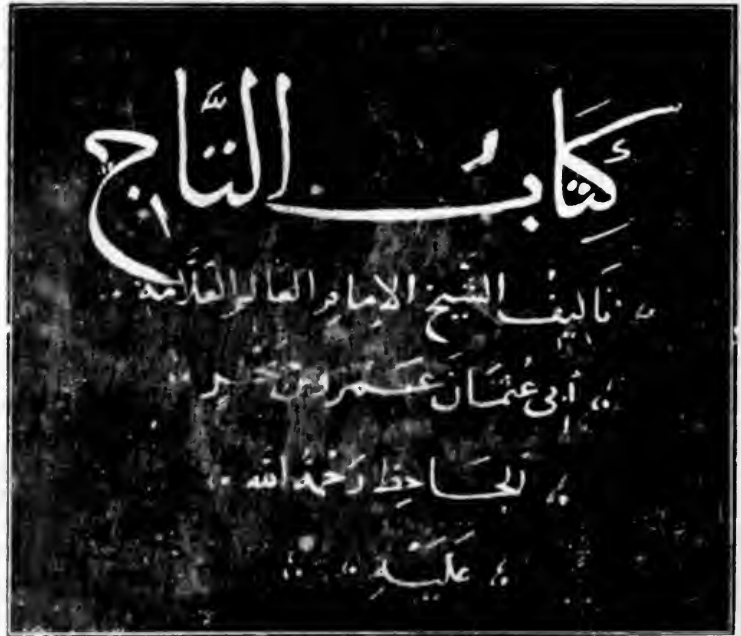 كِتَابُ التَّاج
تأليف الشَّيخ الإمام العالم العلامة
أبى عُثمَانَ عَمرو بن بحر
الجَاحِظ رَحْمَةُ الله
عَلَيْهِ